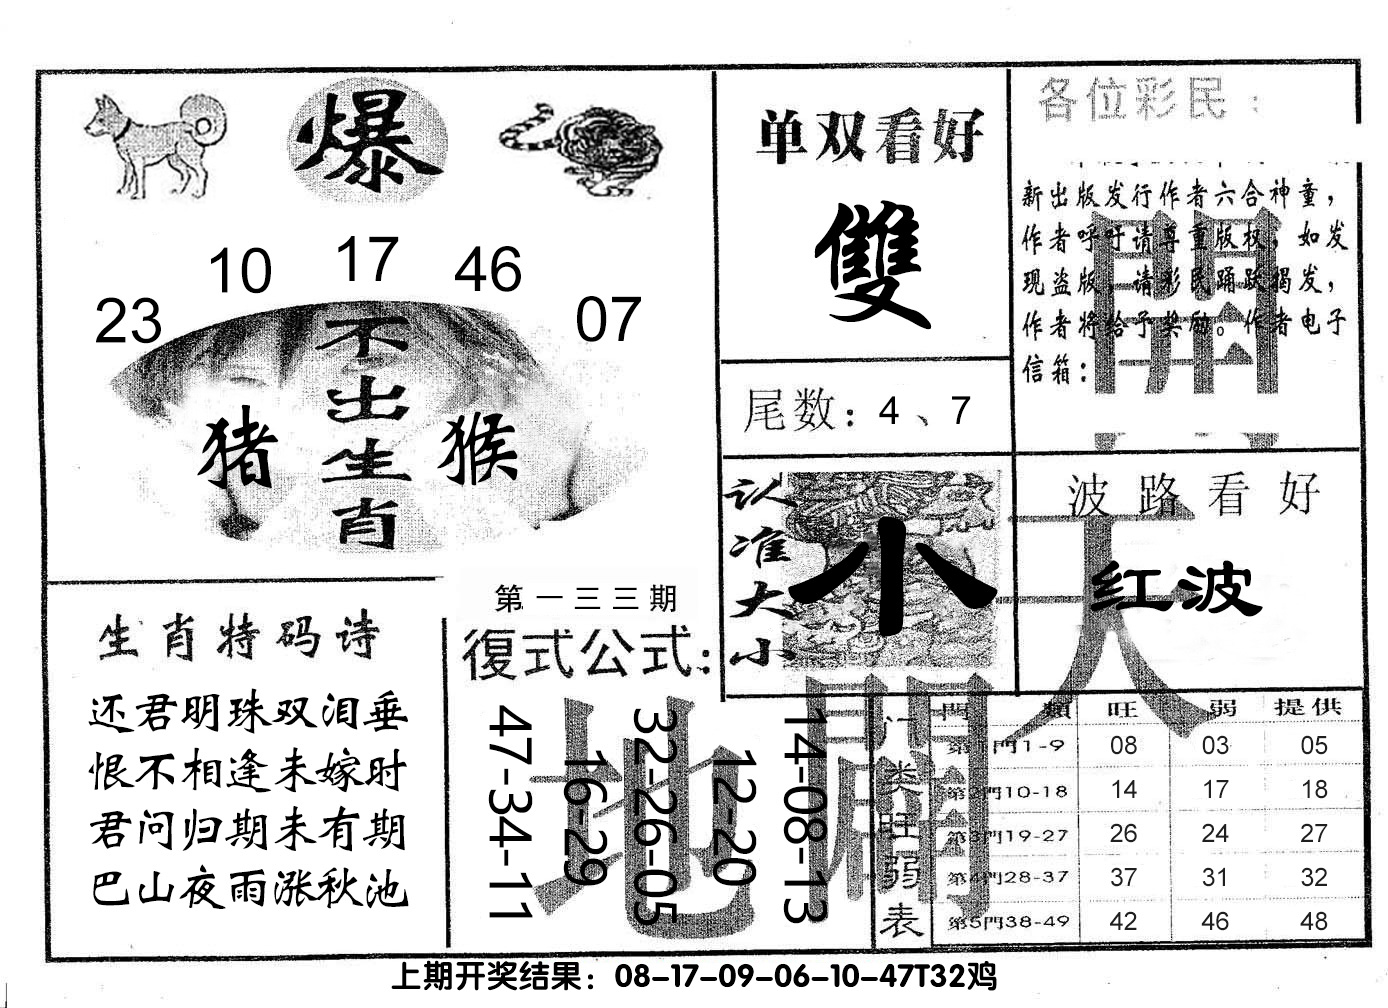 爆
10 17 46
23 07
不出生肖
猪 猴
单双看好
雙
尾数：4、7
认准大小
小
各位彩民：
新出版发行作者六合神童，
作者呼吁请尊重版权，如发
现盗版，请彩民踊跃揭发，
作者将给予奖励。作者电子
信箱：
波路看好
红波
天
地
開
生肖特码诗
还君明珠双泪垂
恨不相逢未嫁时
君问归期未有期
巴山夜雨涨秋池
第一三三期
復式公式：
47-34-11
16-29
32-26-05
12-20
14-08-13
门类旺弱表
門類 旺 弱 提供
第1門1-9 08 03 05
第2門10-18 14 17 18
第3門19-27 26 24 27
第4門28-37 37 31 32
第5門38-49 42 46 48
上期开奖结果：08-17-09-06-10-47T32鸡